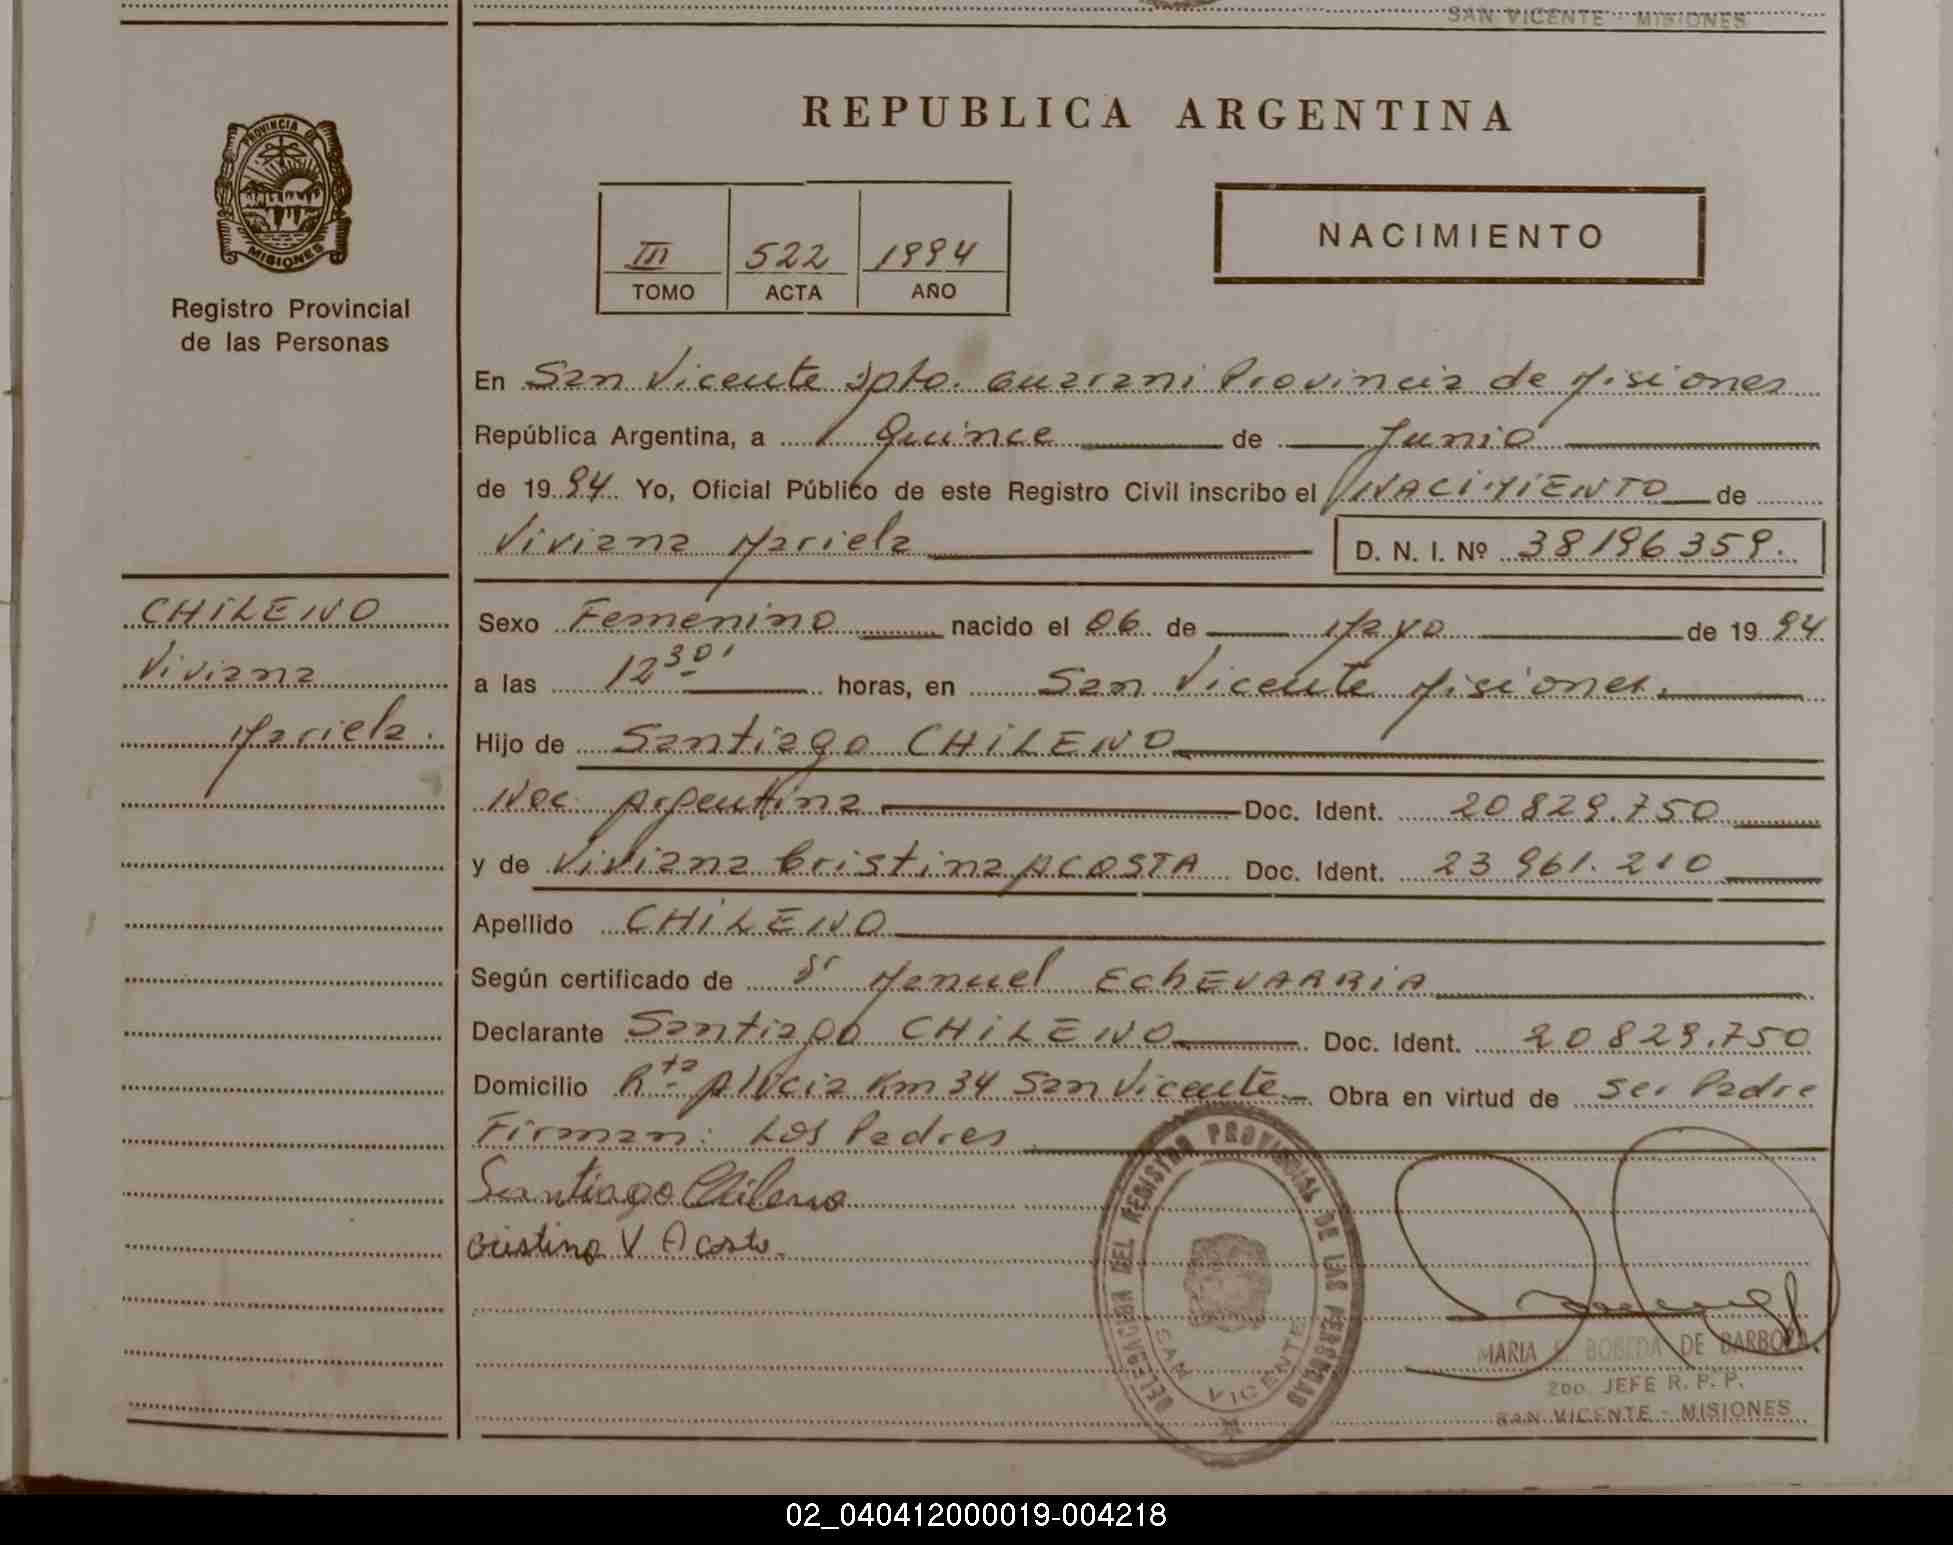 SAN VICENTE - MISIONES
REPUBLICA ARGENTINA
PROVINCIA DE
MISIONES
Registro Provincial
de las Personas
III 522 1994
TOMO ACTA AÑO
NACIMIENTO
En San Vicente Dpto. Guarani Provincia de Misiones
República Argentina, a Quince de Junio
de 1994 Yo, Oficial Público de este Registro Civil inscribo el NACIMIENTO de
Viviana Mariela D. N. I. Nº 38196359.
CHILENO
Viviana
Mariela.
Sexo Femenino nacido el 06 de Mayo de 1994
a las 12 30' horas, en San Vicente Misiones.
Hijo de Santiago CHILENO
Nac. Argentina Doc. Ident. 20829.750
y de Viviana Cristina ACOSTA Doc. Ident. 23961.210
Apellido CHILENO
Según certificado de Dr Manuel EChEVARRIA
Declarante Santiago CHILENO Doc. Ident. 20829.750
Domicilio Rta Alicia Km 34 San Vicente Obra en virtud de ser Padre
Firman: Los Padres
Santiago Chileno
Cristina V Acosta
DELEGACION DEL REGISTRO PROVINCIAL DE LAS PERSONAS
SAN VICENTE
MARIA E. BOBEDA DE BARBOZA
2do. JEFE R. P. P.
SAN VICENTE - MISIONES
02_040412000019-004218